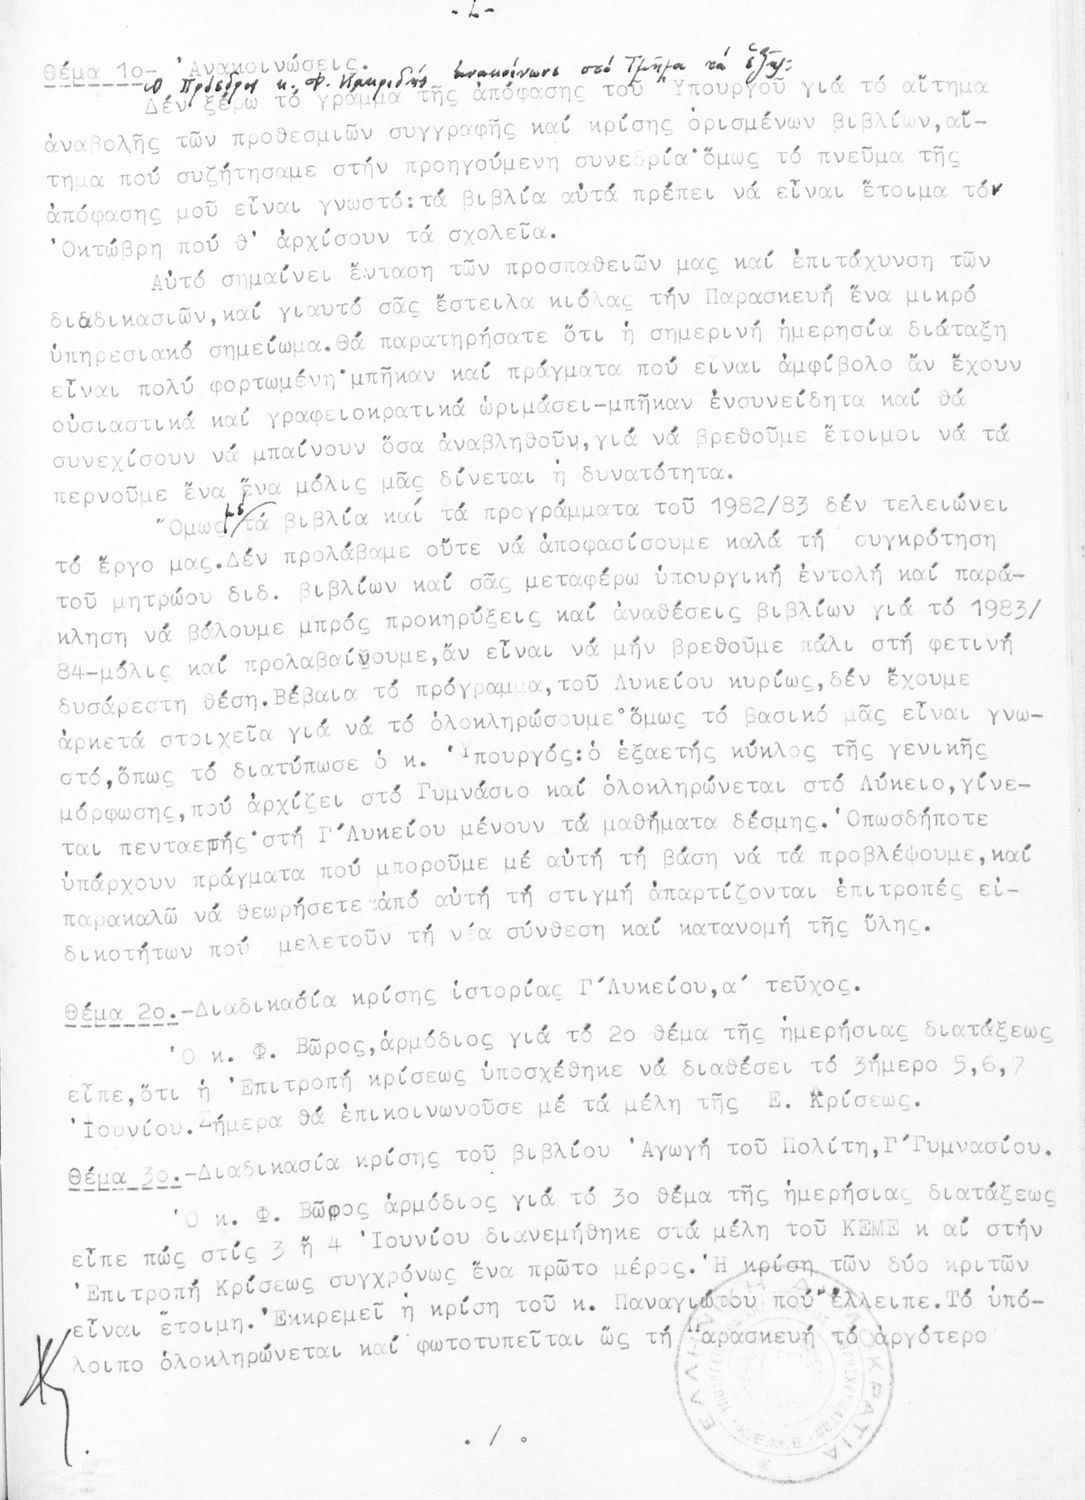 -2-
Θέμα 1ο- Ἀνακοινώσεις.
Ο Πρόεδρος κ. Φ. Κακριδής ἀνακοίνωσε στό Τμῆμα τά ἑξῆς:
Δέν ξέρω τό γράμμα τῆς ἀπόφασης τοῦ Ὑπουργοῦ γιά τό αἴτημα
ἀναβολῆς τῶν προθεσμιῶν συγγραφῆς καί κρίσης ὁρισμένων βιβλίων,αἴ-
τημα πού συζήτησαμε στήν προηγούμενη συνεδρία·ὅμως τό πνεῦμα τῆς
ἀπόφασης μοῦ εἶναι γνωστό:τά βιβλία αὐτά πρέπει νά εἶναι ἕτοιμα τόν
Ὀκτώβρη πού θ' ἀρχίσουν τά σχολεῖα.
Αὐτό σημαίνει ἔνταση τῶν προσπαθειῶν μας καί ἐπιτάχυνση τῶν
διαδικασιῶν,καί γιαυτό σᾶς ἔστειλα κιόλας τήν Παρασκευή ἕνα μικρό
ὑπηρεσιακό σημείωμα.Θά παρατηρήσατε ὅτι ἡ σημερινή ἡμερησία διάταξη
εἶναι πολύ φορτωμένη·μπῆκαν καί πράγματα πού εἶναι ἀμφίβολο ἄν ἔχουν
οὐσιαστικά καί γραφειοκρατικά ὡριμάσει-μπῆκαν ἐνσυνείδητα καί θά
συνεχίσουν νά μπαίνουν ὅσα ἀναβληθοῦν,γιά νά βρεθοῦμε ἕτοιμοι νά τά
περνοῦμε ἕνα ἕνα μόλις μᾶς δίνεται ἡ δυνατότητα.
Ὅμως μέ τά βιβλία καί τά προγράμματα τοῦ 1982/83 δέν τελειώνει
τό ἔργο μας.Δέν προλάβαμε οὔτε νά ἀποφασίσουμε καλά τή συγκρότηση
τοῦ μητρώου διδ. βιβλίων καί σᾶς μεταφέρω ὑπουργική ἐντολή καί παρά-
κληση νά βάλουμε μπρός προκηρύξεις καί ἀναθέσεις βιβλίων γιά τό 1983/
84-μόλις καί προλαβαίνουμε,ἄν εἶναι νά μήν βρεθοῦμε πάλι στή φετινή
δυσάρεστη θέση.Βέβαια τό πρόγραμμα,τοῦ Λυκείου κυρίως,δέν ἔχουμε
ἀρκετά στοιχεῖα γιά νά τό ὁλοκληρώσουμε·ὅμως τό βασικό μᾶς εἶναι γνω-
στό,ὅπως τό διατύπωσε ὁ κ. Ὑπουργός:ὁ ἑξαετής κύκλος τῆς γενικῆς
μόρφωσης,πού ἀρχίζει στό Γυμνάσιο καί ὁλοκληρώνεται στό Λύκειο,γίνε-
ται πενταετής·στή Γ'Λυκείου μένουν τά μαθήματα δέσμης.Ὁπωσδήποτε
ὑπάρχουν πράγματα πού μποροῦμε μέ αὐτή τή βάση νά τά προβλέψουμε,καί
παρακαλῶ νά θεωρήσετε ἀπό αὐτή τή στιγμή ἀπαρτίζονται ἐπιτροπές εἰ-
δικοτήτων πού μελετοῦν τή νέα σύνθεση καί κατανομή τῆς ὕλης.
Θέμα 2ο.-Διαδικασία κρίσης ἱστορίας Γ'Λυκείου,α' τεῦχος.
Ὁ κ. Φ. Βῶρος,ἁρμόδιος γιά τό 2ο θέμα τῆς ἡμερήσιας διατάξεως
εἶπε,ὅτι ἡ Ἐπιτροπή κρίσεως ὑποσχέθηκε νά διαθέσει τό 3ήμερο 5,6,7
Ἰουνίου.Σήμερα θά ἐπικοινωνοῦσε μέ τά μέλη τῆς Ε. Κρίσεως.
Θέμα 3ο.-Διαδικασία κρίσης τοῦ βιβλίου Ἀγωγή τοῦ Πολίτη,Γ'Γυμνασίου.
Ὁ κ. Φ. Βῶρος ἁρμόδιος γιά τό 3ο θέμα τῆς ἡμερήσιας διατάξεως
εἶπε πώς στίς 3 ἤ 4 Ἰουνίου διανεμήθηκε στά μέλη τοῦ ΚΕΜΕ κ αί στήν
Ἐπιτροπή Κρίσεως συγχρόνως ἕνα πρῶτο μέρος.Ἡ κρίση τῶν δύο κριτῶν
εἶναι ἕτοιμη.Ἐκκρεμεῖ ἡ κρίση τοῦ κ. Παναγιώτου πού ἔλλειπε.Τό ὑπό-
λοιπο ὁλοκληρώνεται καί φωτοτυπεῖται ὥς τή Παρασκευή τό ἀργότερο
./.
ΕΛΛΗΝΙΚΗ ΔΗΜΟΚΡΑΤΙΑ
Κ.Ε.Μ.Ε.